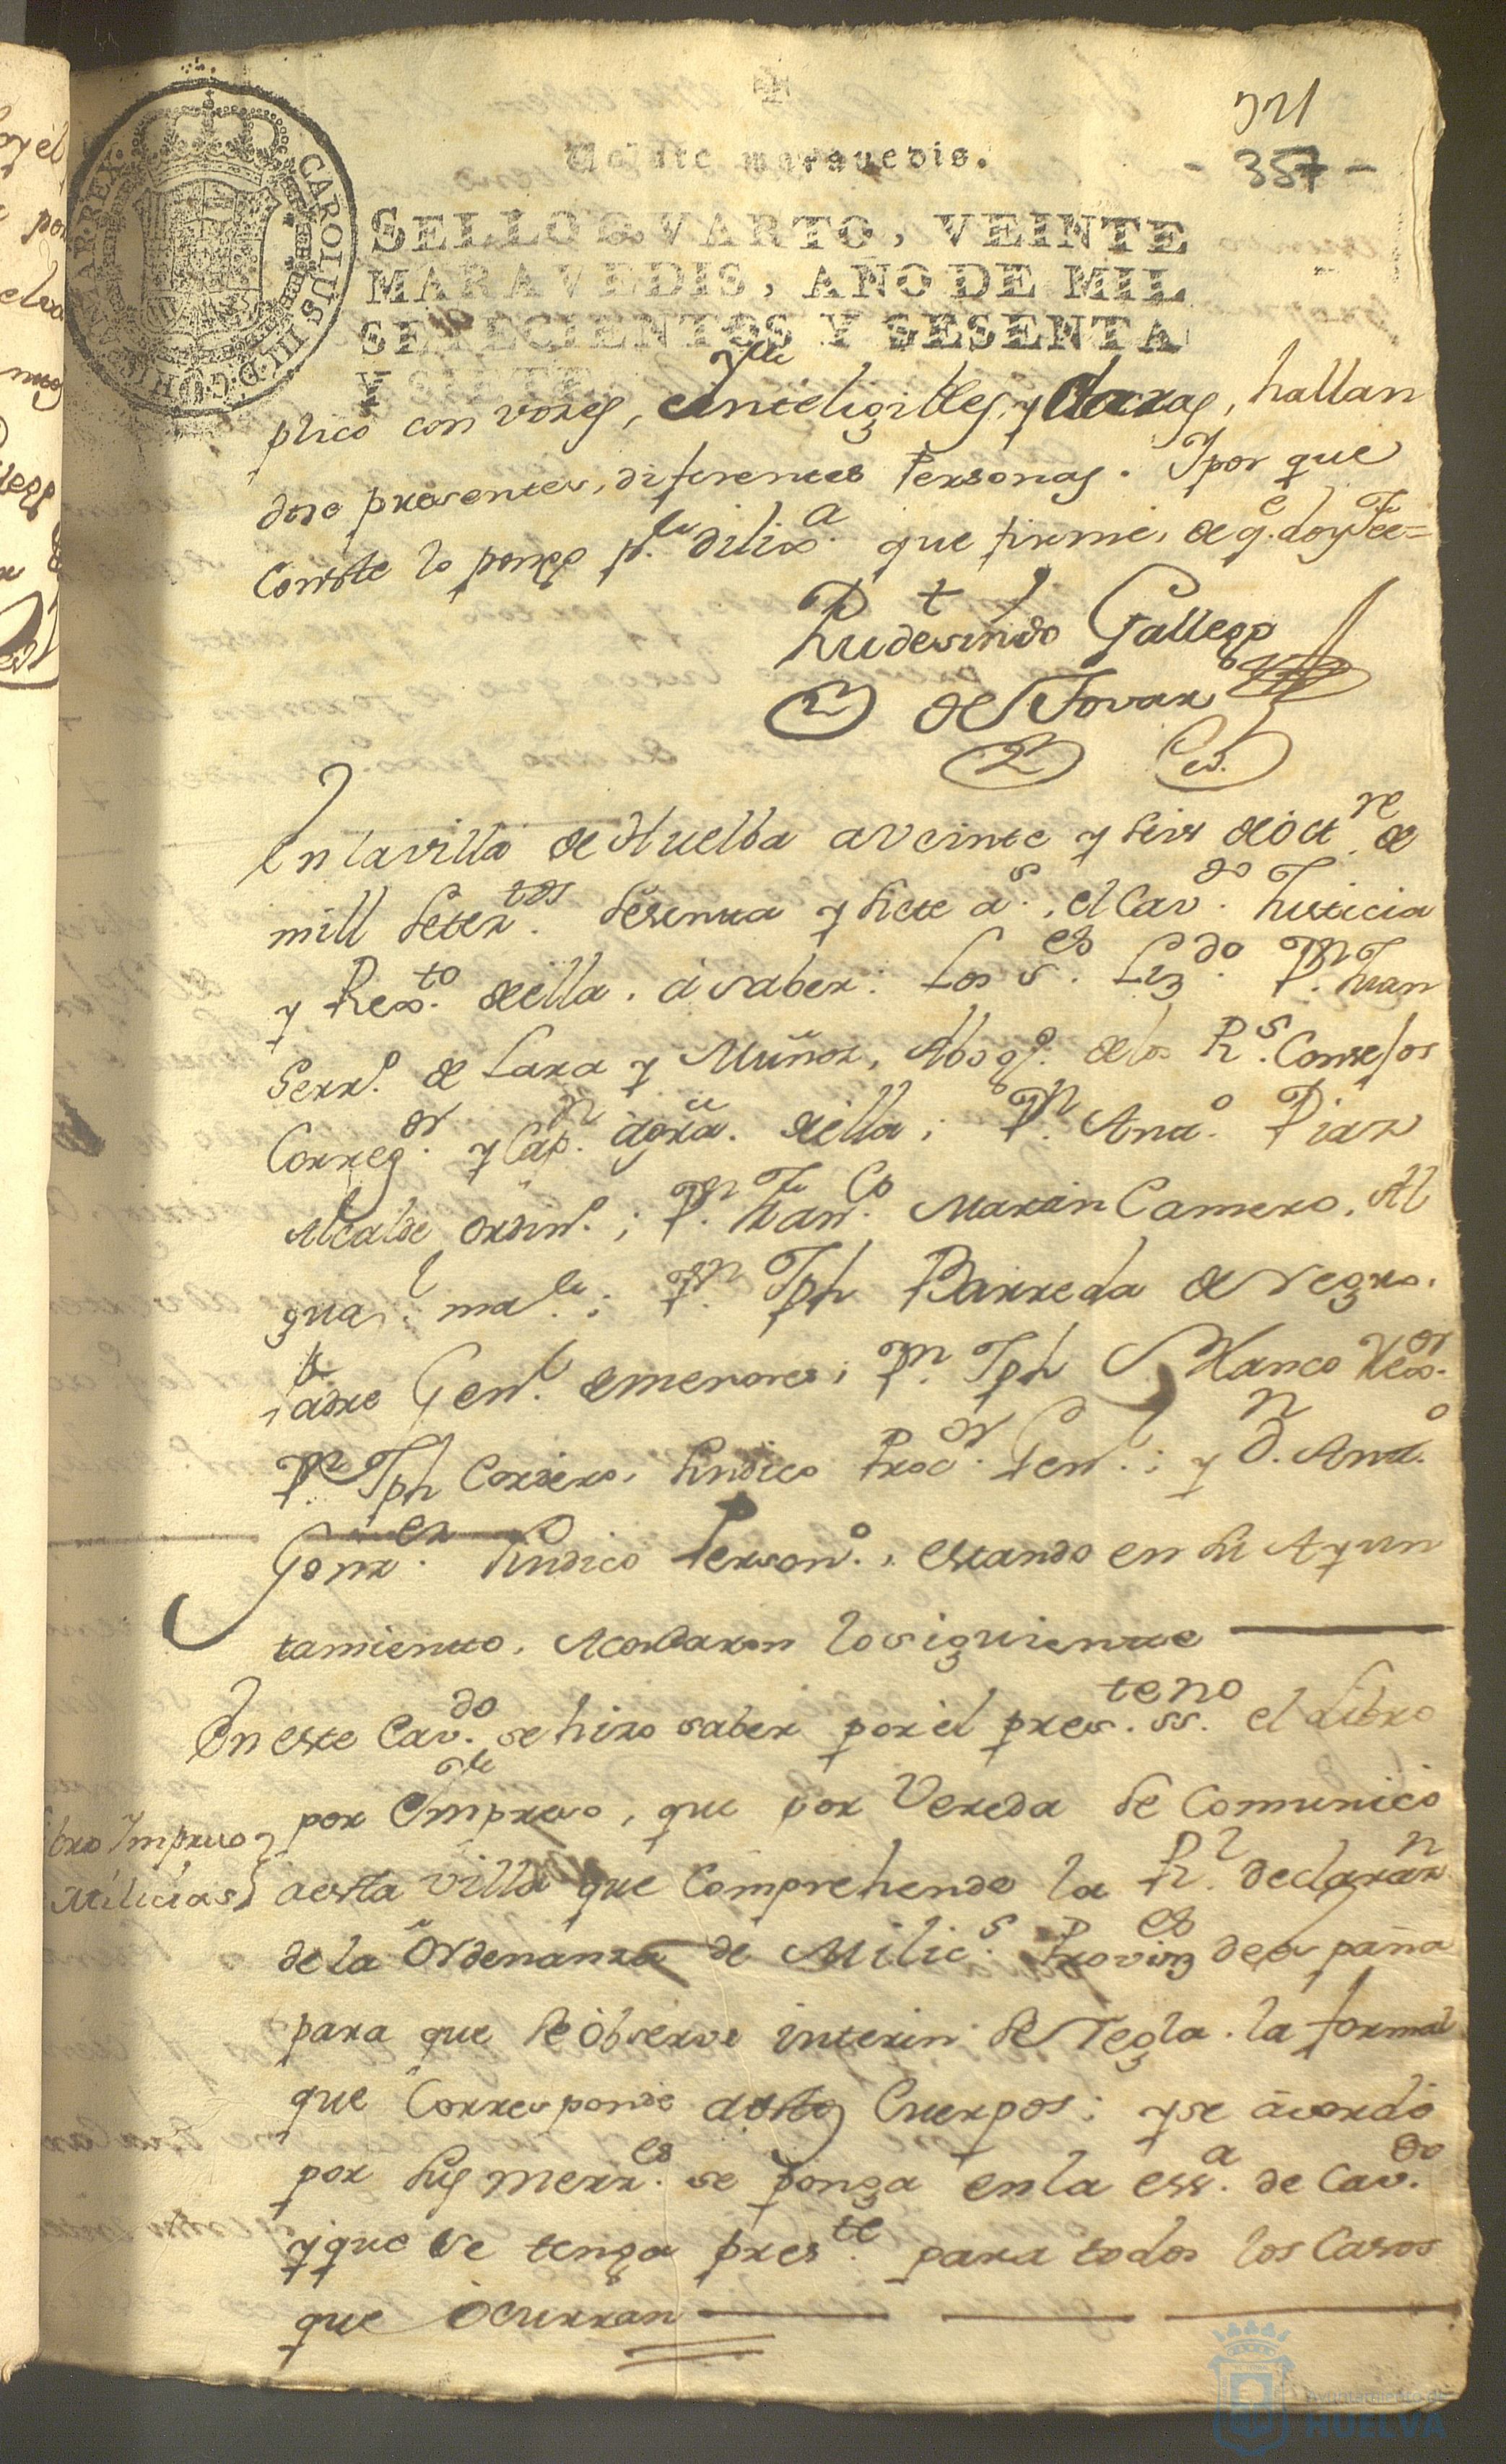 321
- 357 -
Veinte maravedis.
CAROLUS III D G HISPANIAR REX
SELLO QVARTO, VEINTE
MARAVEDIS, AÑO DE MIL
SETECIENTOS Y SESENTA
Y SIETE.
plico con vozes, e inteligibles, y claras, hallan
dose presentes, diferentes Personas. Y por que
Conste lo pongo p.r dilix.a que firmé, de q.e doy Fee=
Rudesindo Gallego
de Tovar
es.no
En la villa de Huelba a veinte y seis de oct.re de
mill setez.tos sesenta y siete a.s, el Cav.do Justicia
y Rex.to de ella. á saber: Los S.es Liz.do D.n Juan
Serr.o de Lara y Muñoz, Abog.o de los R.s Consejos
Correg.or y Cap.n agrã. de ella; D.n And.s Diaz
Alcalde ordin.o; D.n Fran.co Martin Camero, Al
guaz.l ma.r; D.n Jph Barreda de Negro.
Padre Gen.l de menores; D.n Jph Blanco Rex.or
D.n Jph Cordero, Sindico Proc.or Gen.l; y D.n And.s
Gonz.ez Sindico Person.o, estando en su Ayun
tamiento, Acordaron lo siguiente
En este Cav.do se hizo saber por el pres.te ss.no el Libro
por Impreso, que por Vereda se Comunicó
a esta villa que Comprehende la R.l declaraz.n
de la Ordenanza de Milic.s Provinz.es de españa
para que se observe interin se regla la formal
que Corresponde a estos Cuerpos; y se acordó
por sus merz.es se ponga en la ess.a de Cav.do
y que se tenga pres.te para todos los Casos
que ocurran
bro Impreso
Milicias
Ayuntamiento de
HUELVA